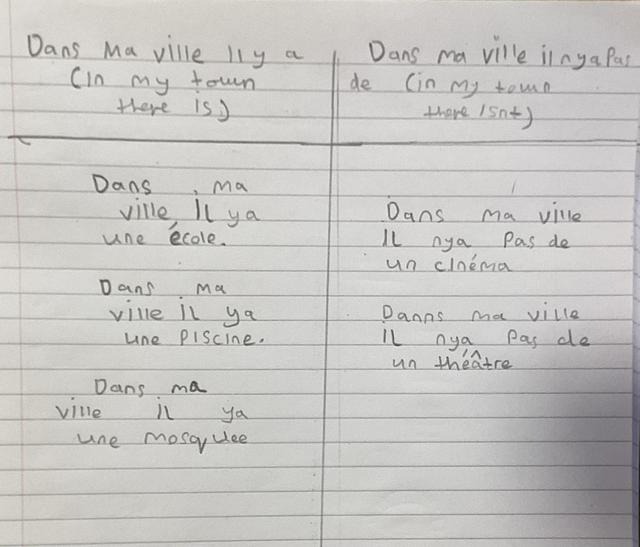 Dans Ma ville Il y a
(in my town
there is)
Dans ma ville il nya Pas
de (in my town
there isnt)
Dans ma
ville, Il ya
une école.
Dans ma
ville il ya
une Piscine.
Dans ma
ville il ya
une mosquee
Dans ma ville
Il nya Pas de
un cinéma
Danns ma ville
Il nya Pas de
un théâtre